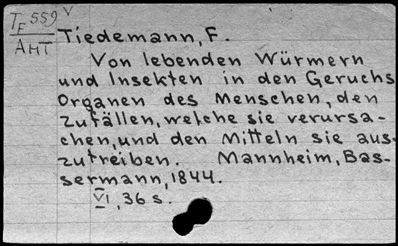 TF 559
АНТ
V
Tiedemann, F.
Von lebenden Würmern
und Insekten in den Geruchs
Organen des Menschen, den
Zufällen, welche sie verursa-
chen, und den Mitteln sie aus-
zutreiben. Mannheim, Bas-
sermann, 1844.
VI, 36 s.